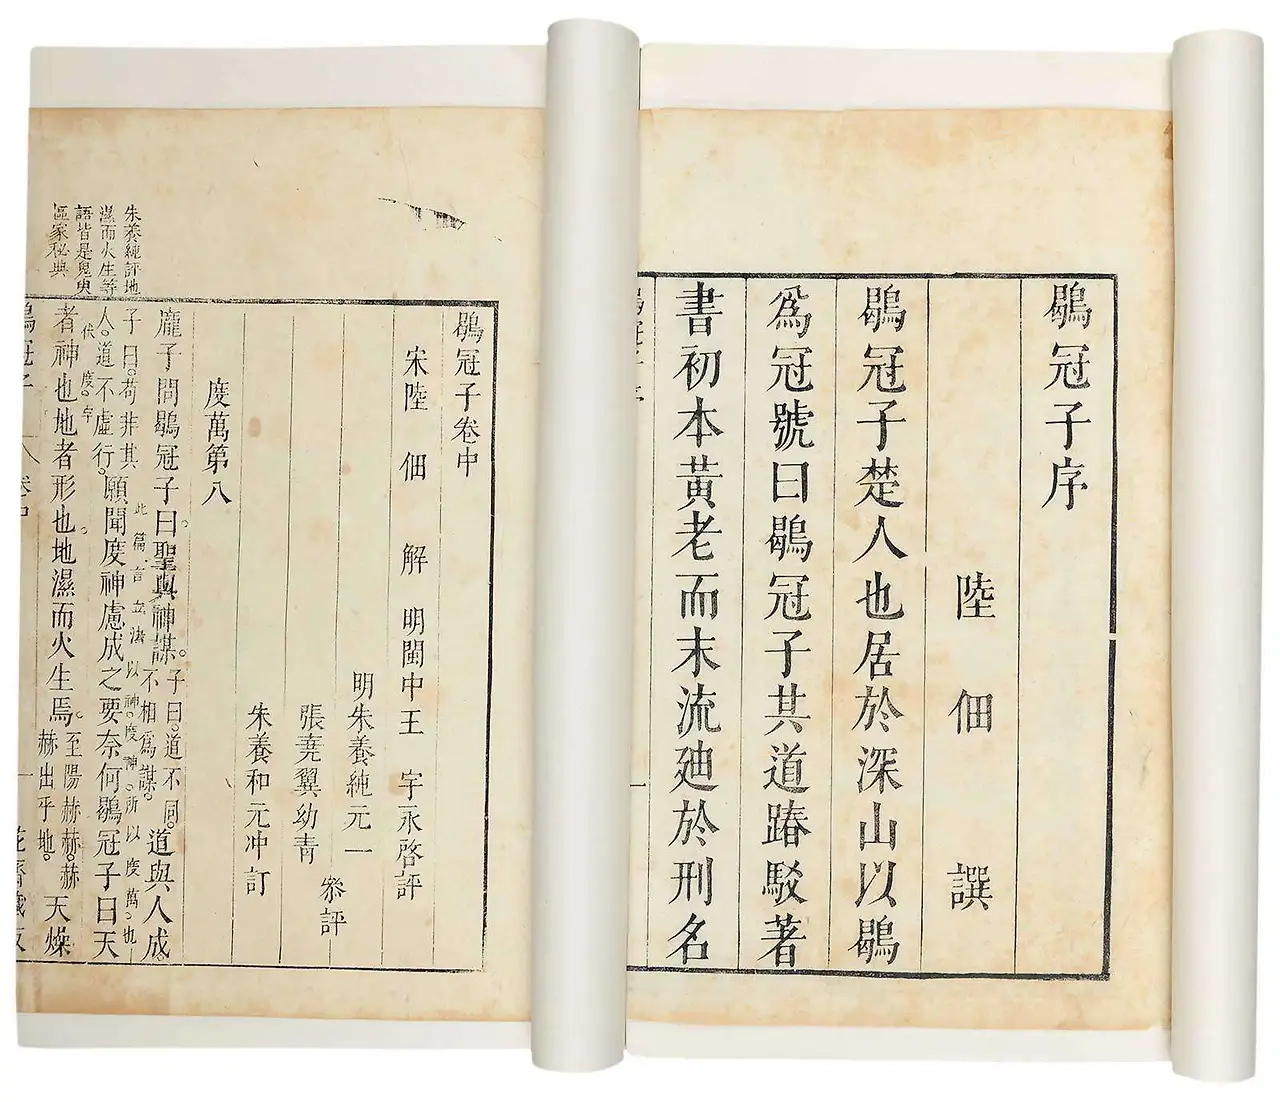 鶡冠子序
陸佃譔
鶡冠子楚人也居於深山以鶡
爲冠號曰鶡冠子其道踳駁著
書初本黃老而末流廸於刑名
鶡冠子卷中
宋陸佃解 明閩中王宇永啓評
明朱養純元一
參評
張堯翼幼青
朱養和元冲訂
度萬第八
龐子問鶡冠子曰。聖與神謀。子曰。道不同。
不相爲謀。
道與人成。
子曰。苟非其
人。道不虛行。
願聞度神慮成之要奈何鶡冠子曰天
此篇言立法以神。度神。所以度萬。也
代度。字
者神也地者形也。地濕而火生焉。
至陽赫赫。赫
赫出乎地。
天燥
朱養純評地
濕而火生等
語皆是鬼臾
區家秘典